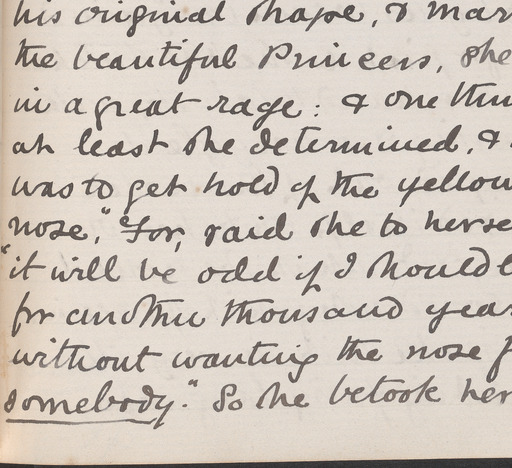 his original shape, & mar
the beautiful Princess, she
in a great rage: & one thin
at least she determined, &
was to get hold of the yellow
nose." For, said she to herse
"it will be odd if I should l
for another thousand year
without wanting the nose f
somebody." So she betook her